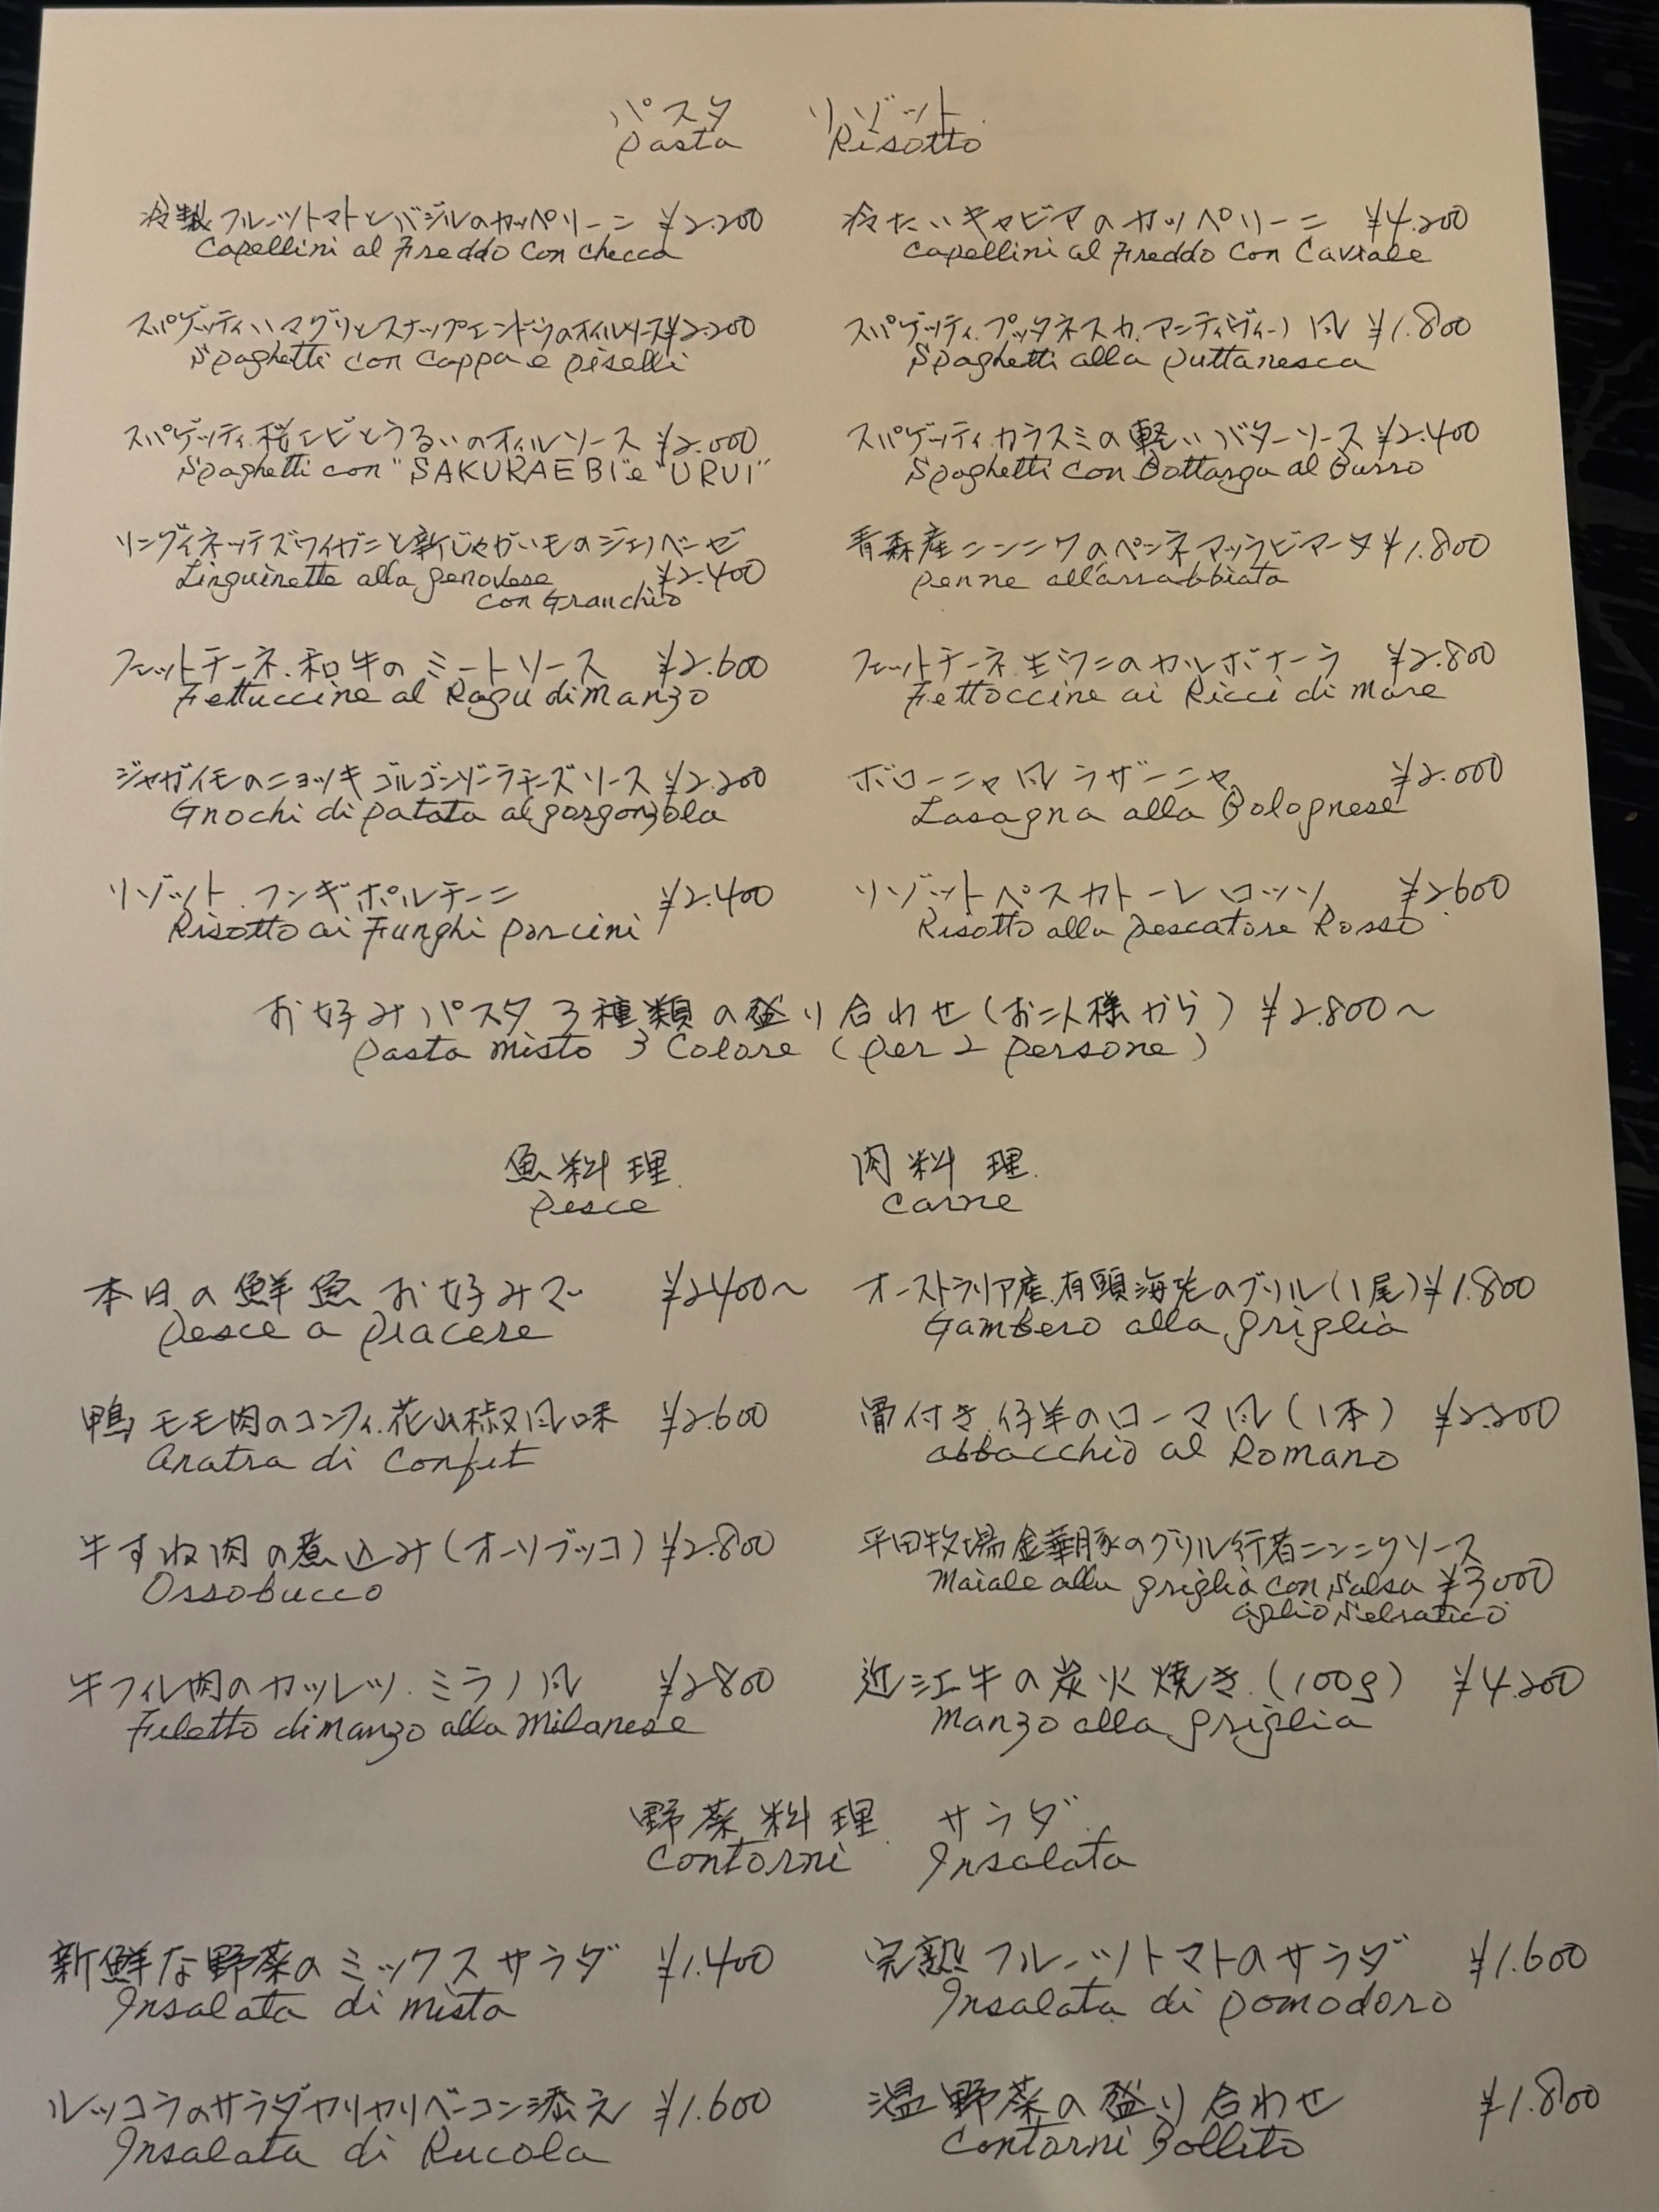 パスタ リゾット
Pasta Risotto
冷製フルーツトマトとバジルのカッペリーニ ¥2.200
Capellini al Freddo con checca
冷たいキャビアのカッペリーニ ¥4.200
Capellini al Freddo con Caviale
スパゲッティハマグリとスナップエンドウのオイルソース¥2.200
Spaghetti con Cappa e piselli
スパゲッティ.プッタネスカ.アンティヴィーノ風 ¥1.800
Spaghetti alla puttanesca
スパゲッティ.桜エビとうるいのオイルソース ¥2.000
Spaghetti con "SAKURAEBI"e "URUI"
スパゲッティ.カラスミの軽いバターソース ¥2.400
Spaghetti con Bottarga al Burro
リングイネッテズワイガニと新じゃがいものジェノベーゼ
Linguinette alla genovese ¥2.400
con Granchio
青森産ニンニクのペンネアッラビアータ ¥1.800
Penne all'arrabbiata
フェットチーネ.和牛のミートソース ¥2.600
Fettuccine al Ragu di Manzo
フェットチーネ.生ウニのカルボナーラ ¥2.800
Fettoccine ai Ricci di Mare
ジャガイモのニョッキゴルゴンゾーラチーズソース ¥2.200
Gnochi di patata al gorgonzola
ボローニャ風ラザーニャ ¥2.000
Lasagna alla Bolognese
リゾット.フンギポルチーニ ¥2.400
Risotto ai Funghi porcini
リゾットペスカトーレロッソ ¥2600
Risotto alla pescatore Rosso
お好みパスタ3種類の盛り合わせ(お二人様から) ¥2.800〜
Pasta misto 3 Colore (per 2 persone)
魚料理 肉料理
Pesce Carne
本日の鮮魚お好みで ¥2400〜
Pesce a piacere
オーストラリア産.有頭海老のグリル(1尾)¥1.800
Gambero alla griglia
鴨モモ肉のコンフィ.花山椒風味 ¥2.600
Anatra di Confit
骨付き仔羊のローマ風(1本) ¥2.200
abbacchio al Romano
牛すね肉の煮込み(オーソブッコ) ¥2.800
Ossobucco
平田牧場金華豚のグリル行者ニンニクソース
Maiale alla griglia con Salsa ¥3000
aglio Selvatico
牛フィレ肉のカツレツ.ミラノ風 ¥2800
Filetto di manzo alla Milanese
近江牛の炭火焼き.(100g) ¥4.200
Manzo alla griglia
野菜料理 サラダ
Contorni Insalata
新鮮な野菜のミックスサラダ ¥1.400
Insalata di mista
完熟フルーツトマトのサラダ ¥1.600
Insalata di pomodoro
ルッコラのサラダカリカリベーコン添え ¥1.600
Insalata di Rucola
温野菜の盛り合わせ ¥1.800
Contorni Bollito